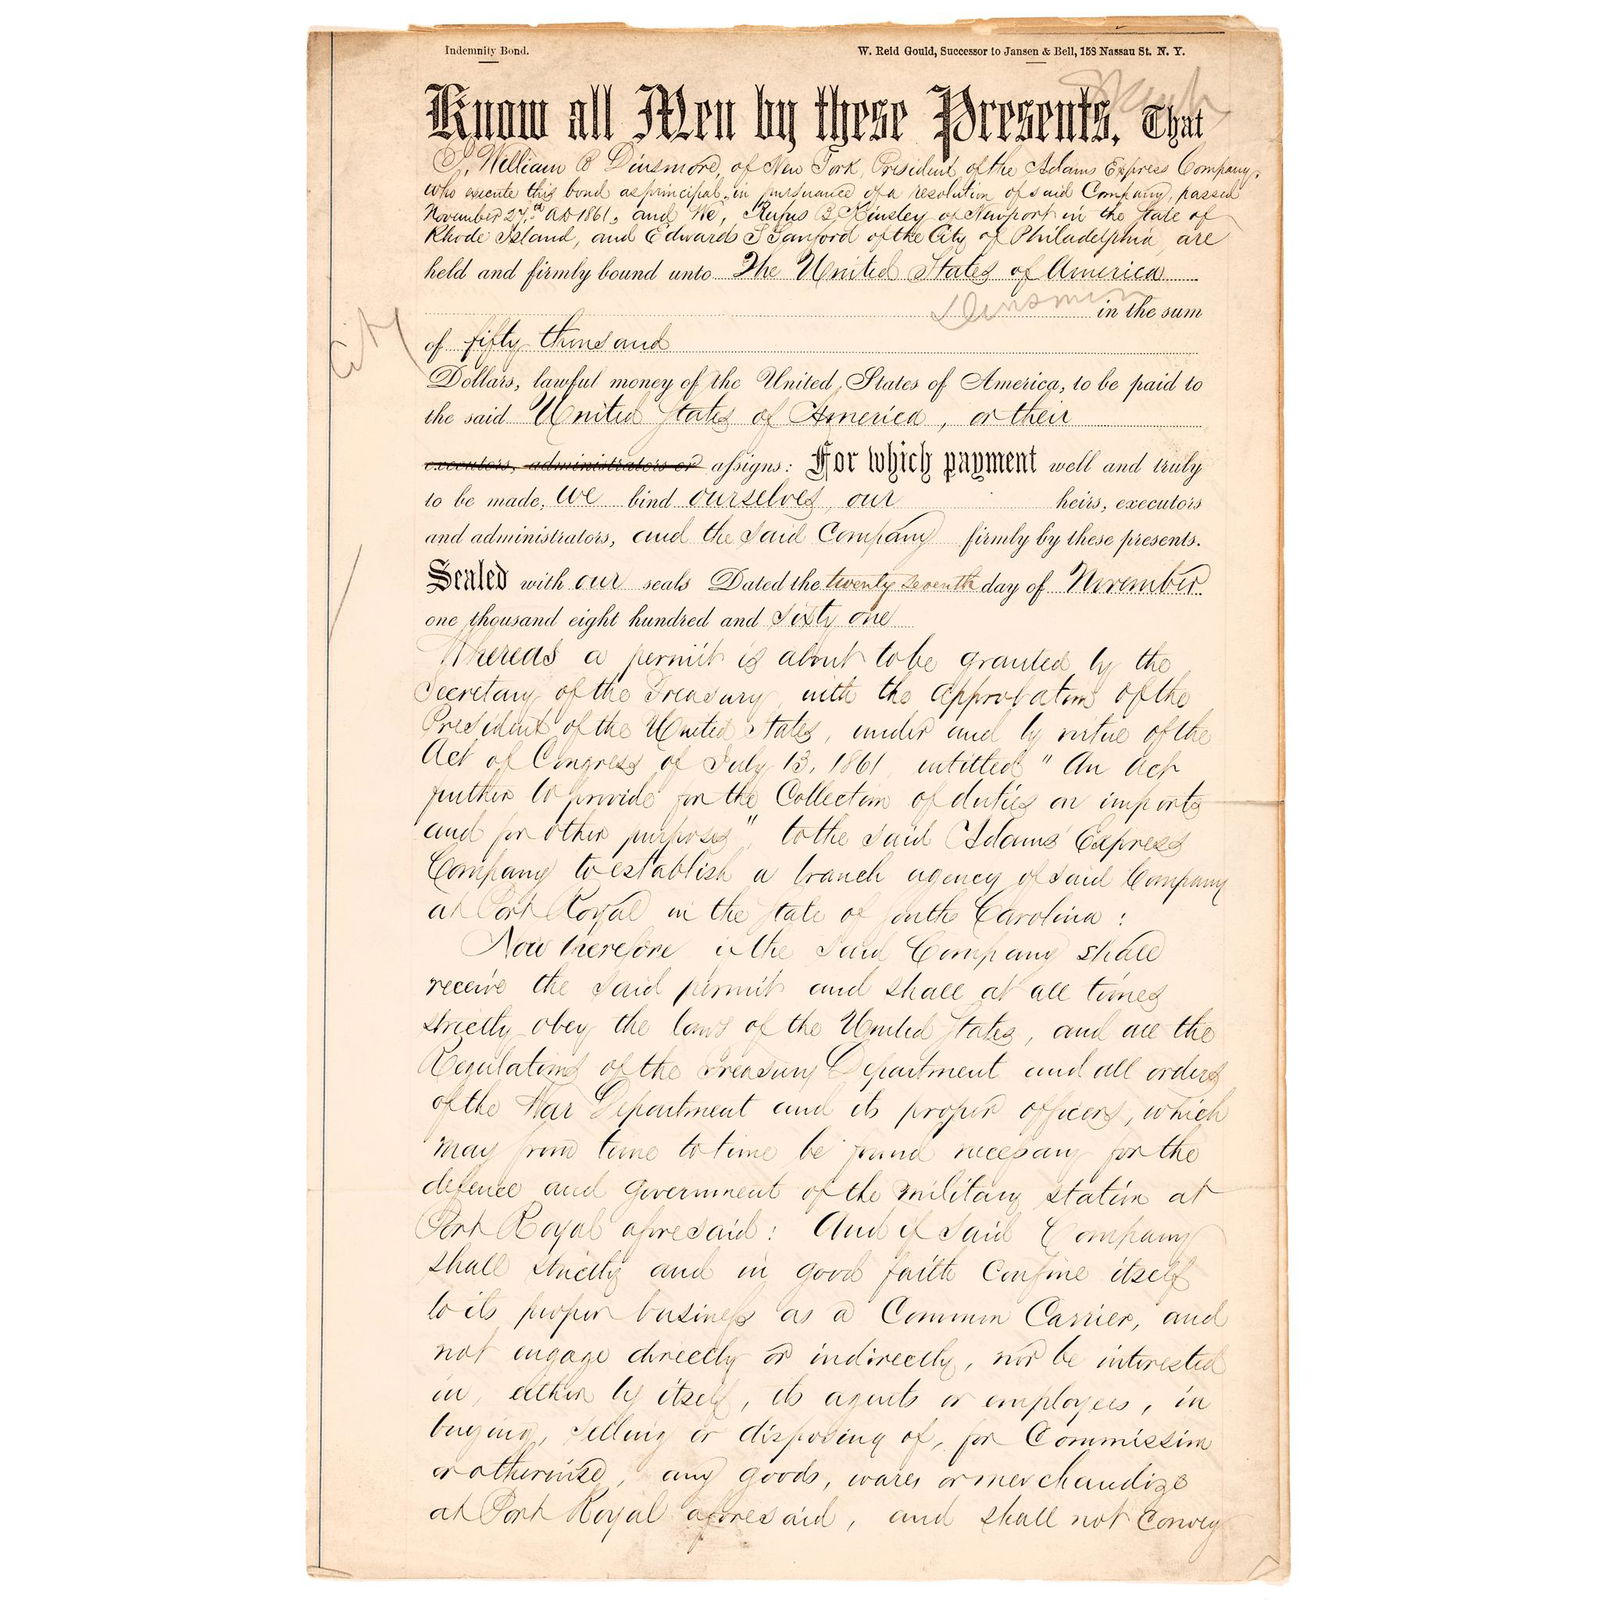 Indemnity Bond.
W. Reid Gould, Successor to Jansen & Bell, 158 Nassau St. N. Y.
Know all Men by these Presents, That
I, William B Dinsmore, of New York, President of the Adams Express Company,
who execute this bond as principal, in pursuance of a resolution of said Company, passed
November 27th. AD 1861, and We, Rufus B. Kinsley of Newport in the State of
Rhode Island, and Edwards S Sanford of the City of Philadelphia, are
held and firmly bound unto The United States of America
Dinsmore
in the sum
of fifty thousand
City
Dollars, lawful money of the United States of America, to be paid to
the said United States of America, or their
executors, administrators or assigns: For which payment well and truly
to be made, we bind ourselves, our heirs, executors
and administrators, and the said Company firmly by these presents.
Sealed with our seals Dated the twenty seventh day of November
one thousand eight hundred and sixty one
Whereas a permit is about to be granted by the
Secretary of the Treasury, with the approbation of the
President of the United States, under and by virtue of the
Act of Congress of July 13, 1861, entitled "An Act
further to provide for the Collection of duties on imports
and for other purposes", to the said Adams' Express
Company to establish a branch agency of said Company
at Port Royal in the State of South Carolina:
Now therefore if the said Company shall
receive the said permit and shall at all times
strictly obey the laws of the United States, and all the
Regulations of the Treasury Department and all orders
of the War Department and its proper officers, which
may from time to time be found necessary for the
defence and government of the military station at
Port Royal aforesaid: And if said Company
shall strictly and in good faith confine itself
to its proper business as a Common Carrier, and
not engage directly or indirectly, nor be interested
in, either by itself, its agents or employees, in
buying, selling or disposing of, for Commission
or otherwise, any goods, wares or merchandize
at Port Royal aforesaid, and shall not convey